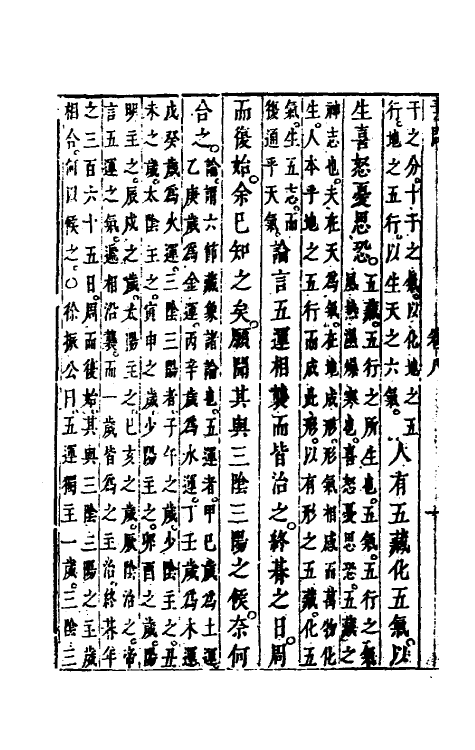 卷八
十
干之分。十干之氣。以化地之五
行。地之五行。以生天之六氣。
人有五藏化五氣。以
生喜怒憂思恐。
五藏。五行之所生也。五氣。五行之氣
風熱濕燥寒也。喜怒憂思恐。五藏之
神志也。夫在天爲氣。在地成形。形氣相感而萬物化
生。人本乎地之五行而成此形。以有形之五藏化五
氣。生五志。而
後通乎天氣。
論言五運相襲而皆治之。終朞之日。周
而後始。余已知之矣。願聞其與三陰三陽之候。奈何
合之。
論謂六節藏象諸論也。五運者。甲巳歲爲土運
乙庚歲爲金運。丙辛歲爲水運。丁壬歲爲木運
戊癸歲爲火運。三陰三陽者。子午之歲。少陰主之。丑
未之歲。太陰主之。寅申之歲。少陽主之。卯酉之歲。陽
明主之。辰戌之歲。太陽主之。巳亥之歲。厥陰治之。帝
言五運之氣。遞相沿襲。而一歲皆爲之主治。終朞年
之三百六十五日。周而復始。其與三陰三陽之主歲
相合。何以候之。〇徐振公曰。五運獨主一歲。三陰三